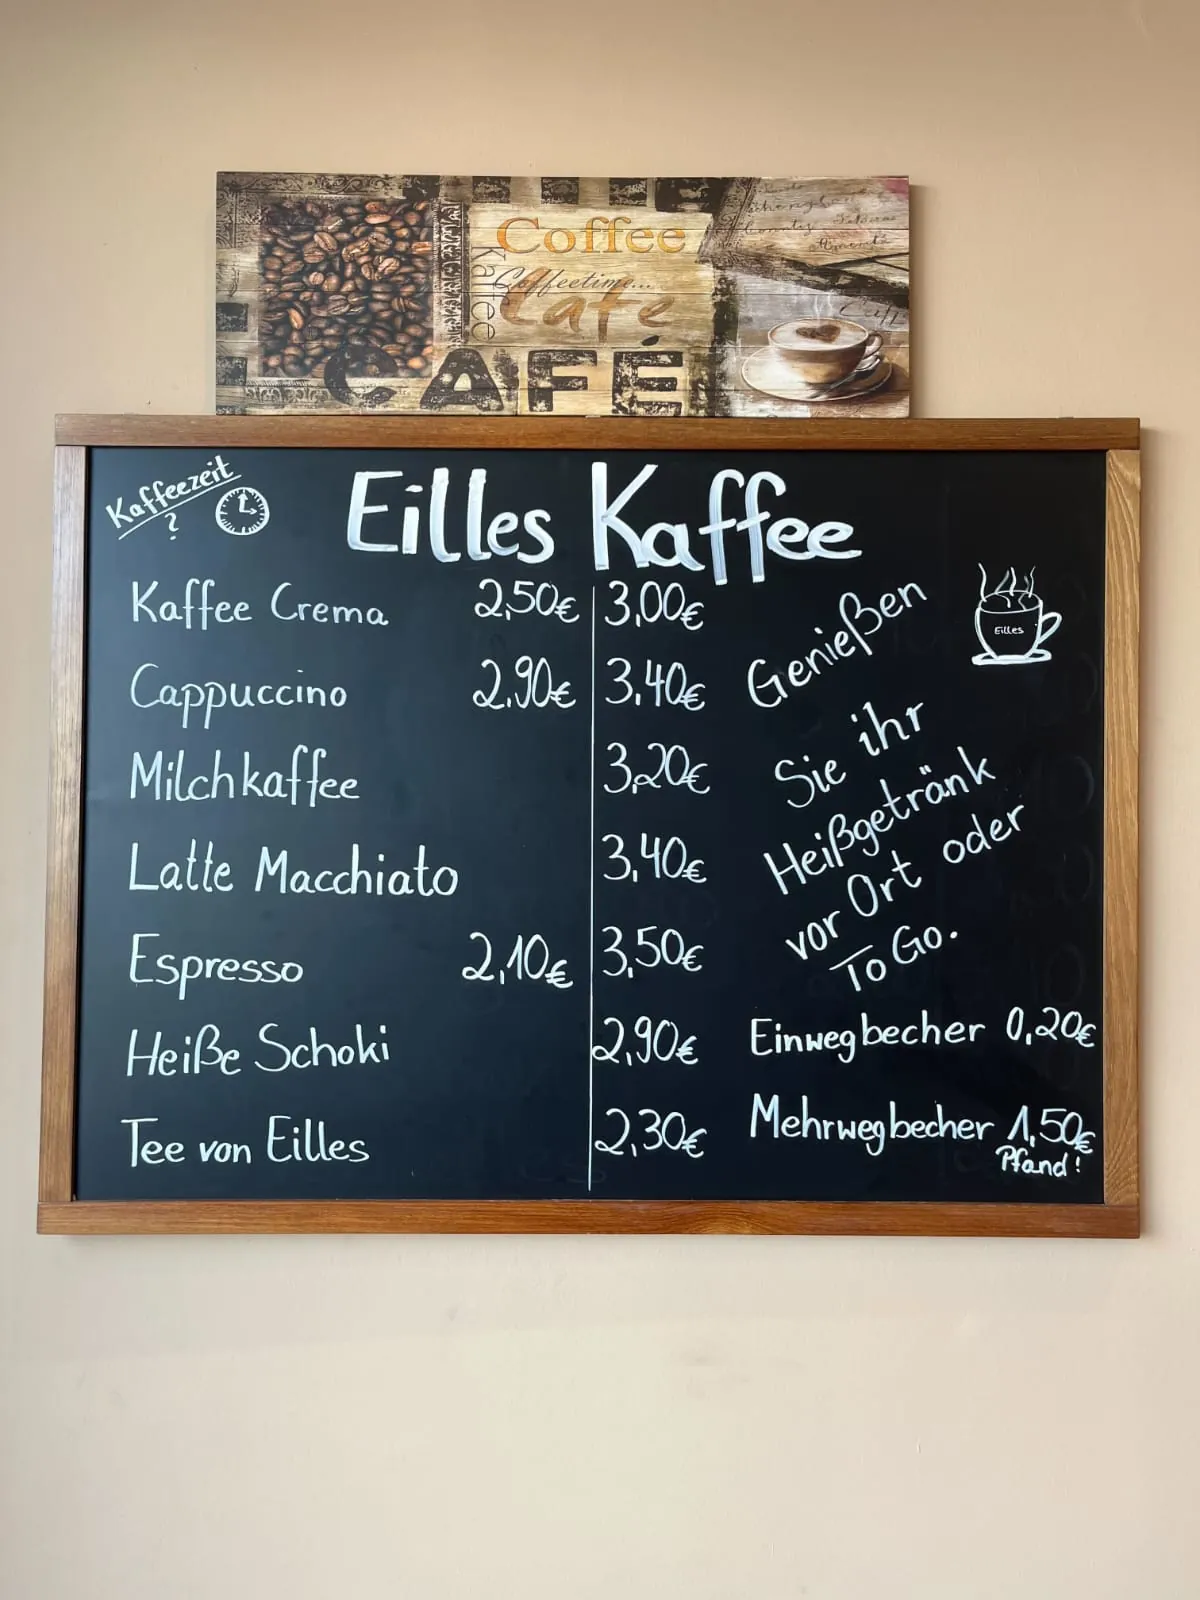 Coffee
Kaffee
Coffeetime...
Cafe
CAFÉ
Kaffeezeit
?
Eilles Kaffee
Kaffee Crema 2,50€ 3,00€
Cappuccino 2,90€ 3,40€
Milchkaffee 3,20€
Latte Macchiato 3,40€
Espresso 2,10€ 3,50€
Heiße Schoki 2,90€
Tee von Eilles 2,30€
Eilles
Genießen
Sie ihr
Heißgetränk
vor Ort oder
To Go.
Einwegbecher 0,20€
Mehrwegbecher 1,50€
Pfand!